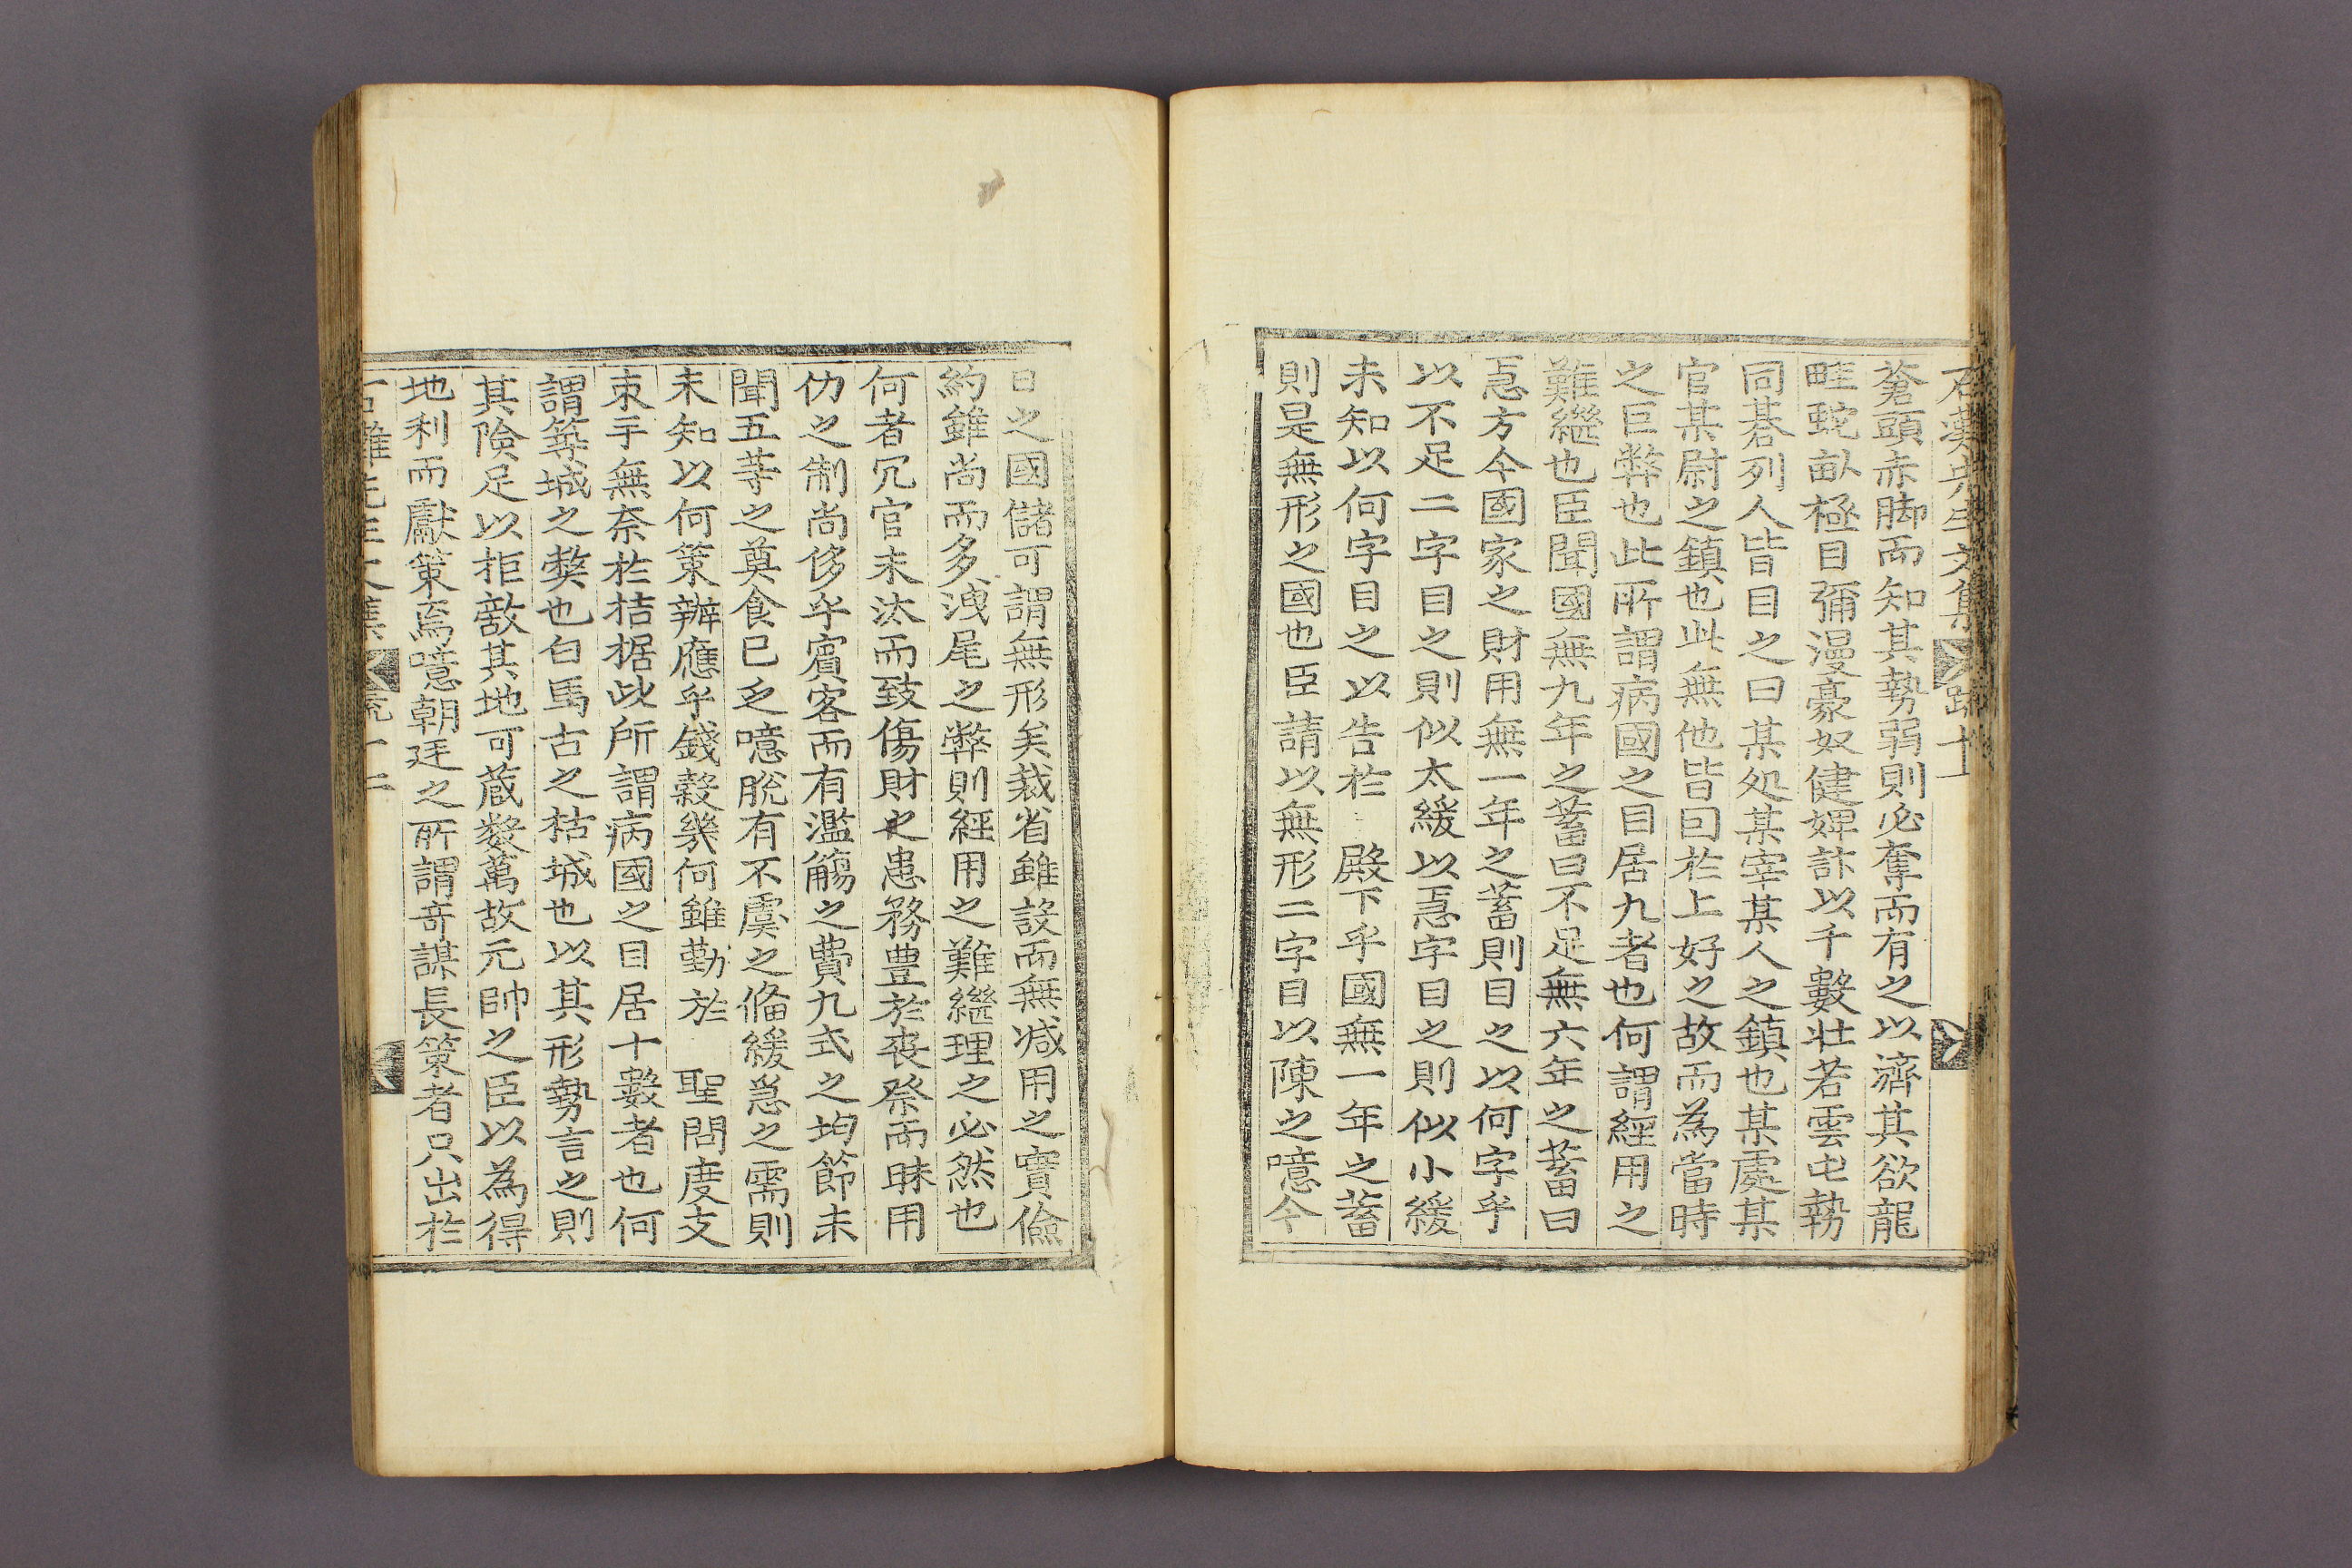 石灘先生文集 疏 十一
蒼頭赤脚而知其勢弱則必奪而有之以濟其欲龍
畦蛇畝極目彌漫豪奴健婢計以千數壯若雲屯勢
同碁列人皆目之曰某処某宰某人之鎮也某處某
官某尉之鎮也此無他皆囙於上好之故而為當時
之巨弊也此所謂病國之目居九者也何謂經用之
難繼也臣聞國無九年之蓄曰不足無六年之蓄曰
急方今國家之財用無一年之蓄則目之以何字乎
以不足二字目之則似太緩以急字目之則似小緩
未知以何字目之以告於 殿下乎國無一年之蓄
則是無形之國也臣請以無形二字目以陳之噫今
日之國儲可謂無形矣裁省雖設而無减用之實儉
約雖尚而多洩尾之弊則經用之難繼理之必然也
何者冗官未汰而致傷財之患務豊於喪祭而昧用
仂之制尚侈乎賓客而有濫觴之費九式之均節未
聞五䓁之奠食已乏噫脫有不虞之俻緩急之需則
未知以何策辦應乎錢穀㡬何雖勤於 聖問度支
束手無柰於拮据此所謂病國之目居十數者也何
謂築城之獘也白馬古之枯城也以其形勢言之則
其險足以拒敵其地可蔵数萬故元帥之臣以為得
地利而獻策焉噫朝廷之所謂竒謀長策者只出於
石灘先生文集 疏 十二